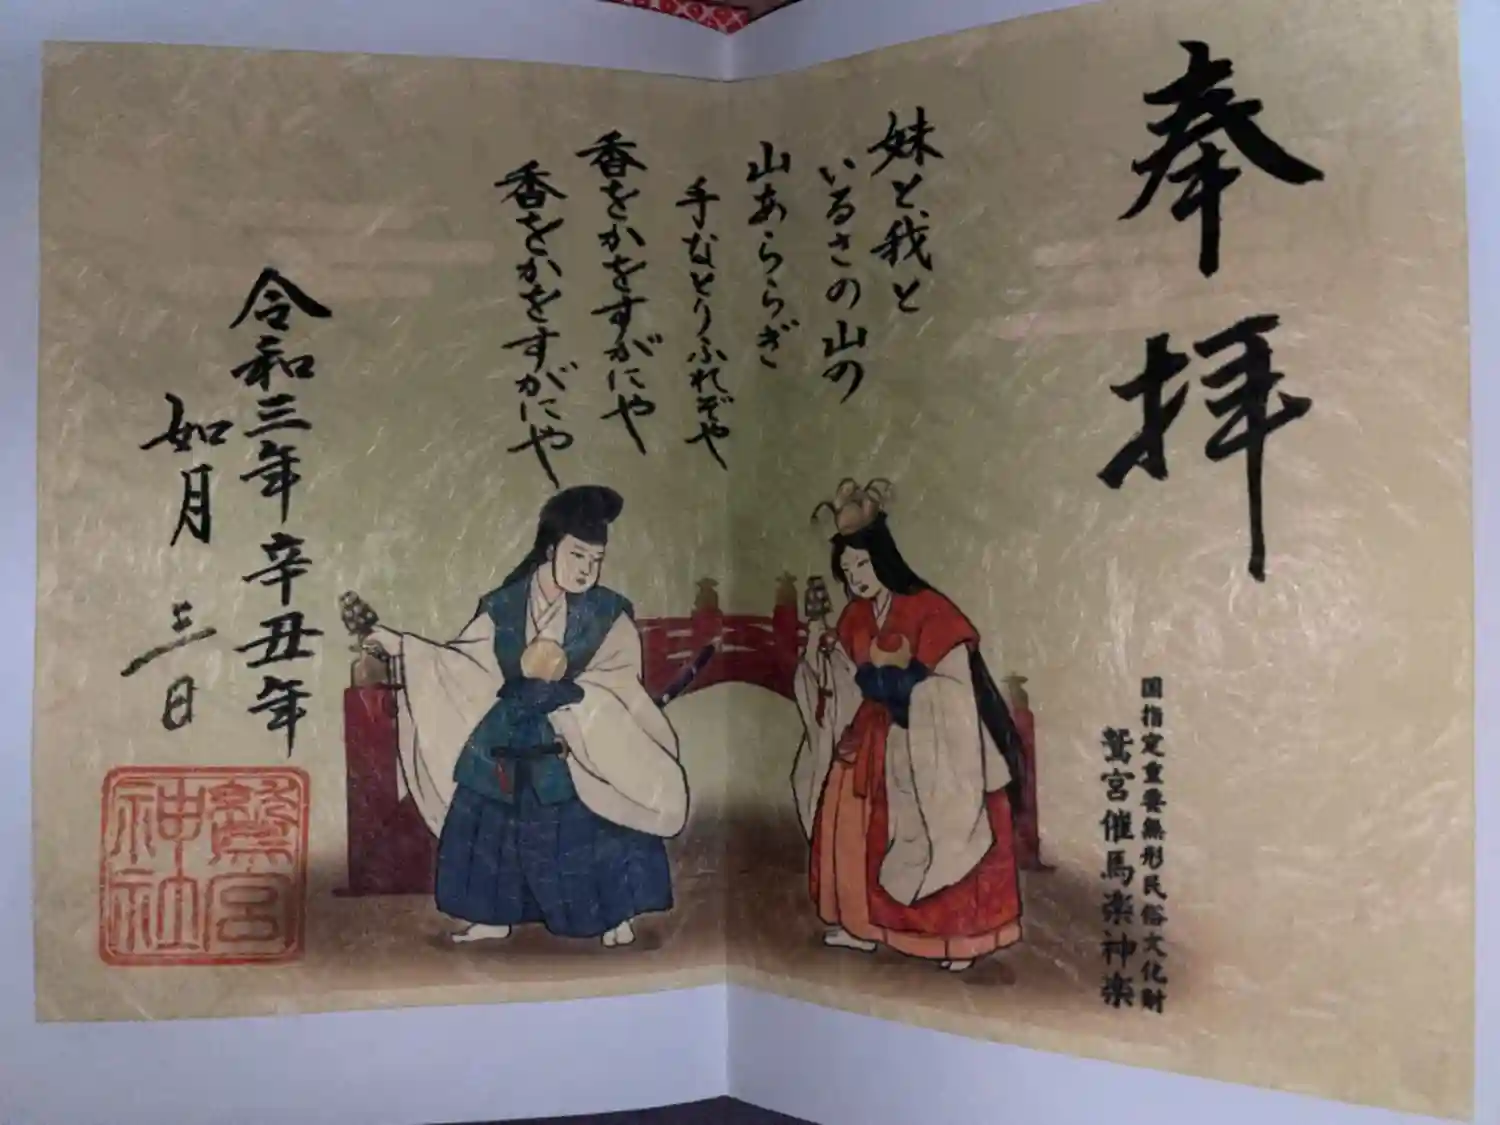 奉拝
国指定重要無形民俗文化財
鷲宮催馬楽神楽
妹と我と
いるさの山の
山あららぎ
手なとりふれぞや
香をかをすがにや
香をかをすがにや
令和三年辛丑年
如月三日
鷲宮
神社